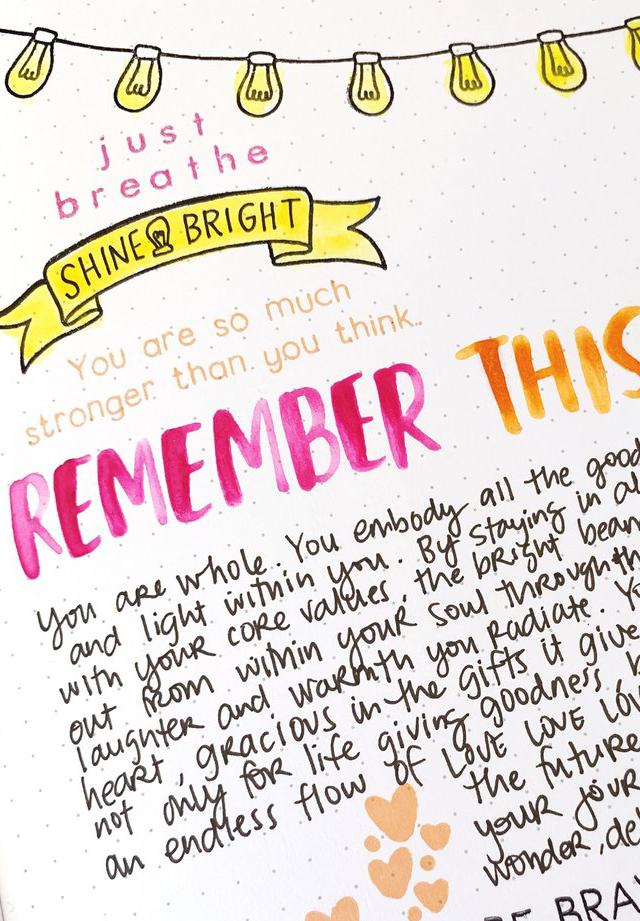 just
breathe
SHINE BRIGHT
You are so much
stronger than you think..
REMEMBER THIS
You are whole. You embody all the good
and light within you. By staying in al
with your core values, the bright beam
out from within your soul through th
laughter and warmth you radiate. Y
heart, gracious in the gifts it give
not only for life giving goodness,
an endless flow of LOVE LOVE LOV
the future
your jour
wonder, de
BE BRAV